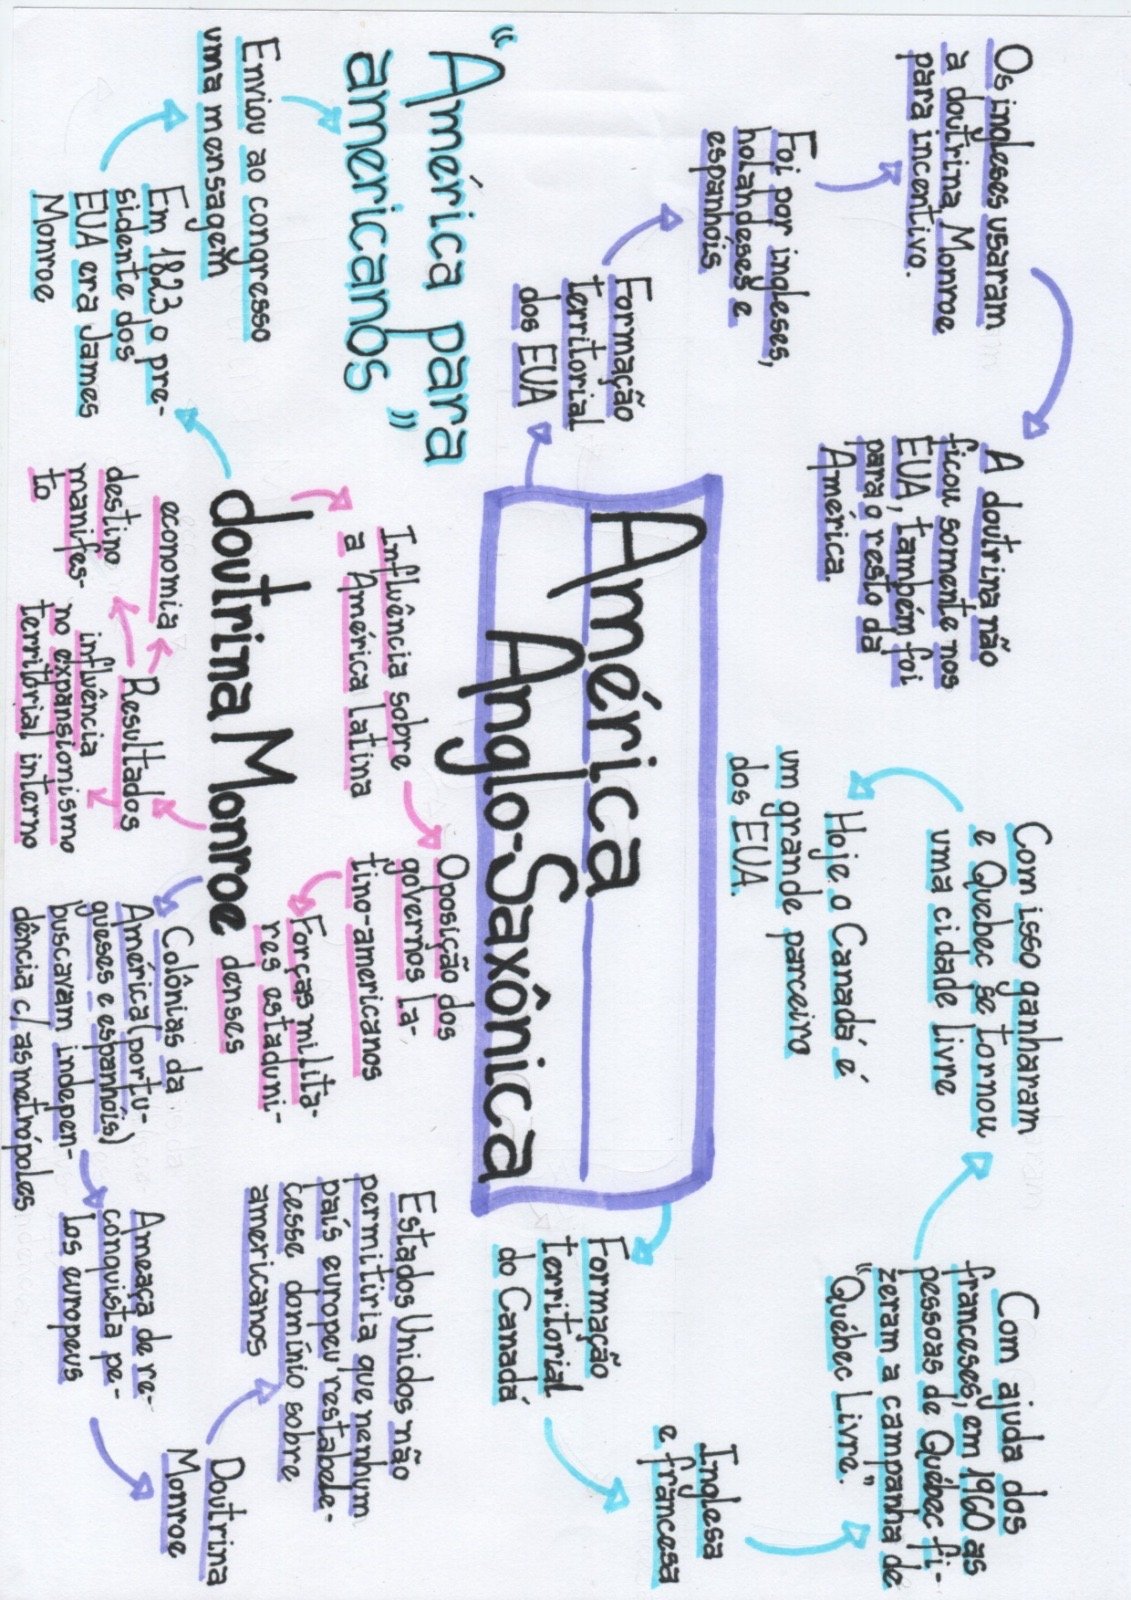 América
Anglo-Saxônica
Formação
territorial
dos EUA
Foi por ingleses,
holandeses e
espanhóis
Os ingleses usaram
a doutrina Monroe
para incentivo.
A doutrina não
ficou somente nos
EUA, também foi
para o resto da
América.
Formação
territorial
do Canadá
Inglesa
e francesa
Com ajuda dos
franceses, em 1960 as
pessoas de Québec fi-
zeram a campanha de
"Québec Livre."
Com isso ganharam
e Quebec se tornou
uma cidade livre
Hoje o Canadá é
um grande parceiro
dos EUA.
doutrina Monroe
Em 1823 o pre-
sidente dos
EUA era James
Monroe
Enviou ao congresso
uma mensagem
"América para
americanos"
Influência sobre
a América latina
Oposição dos
governos la-
tino-americanos
Forças milita-
res estaduni-
denses
Resultados
economia
destino
manifes-
to
influência
no expansionismo
territorial interno
Colônias da
América (portu-
gueses e espanhóis)
buscavam indepen-
dência c/ as metrópoles
Ameaça de re-
conquista pe-
los europeus
Doutrina
Monroe
Estados Unidos não
permitiria que nenhum
país europeu restabele-
cesse domínio sobre
americanos